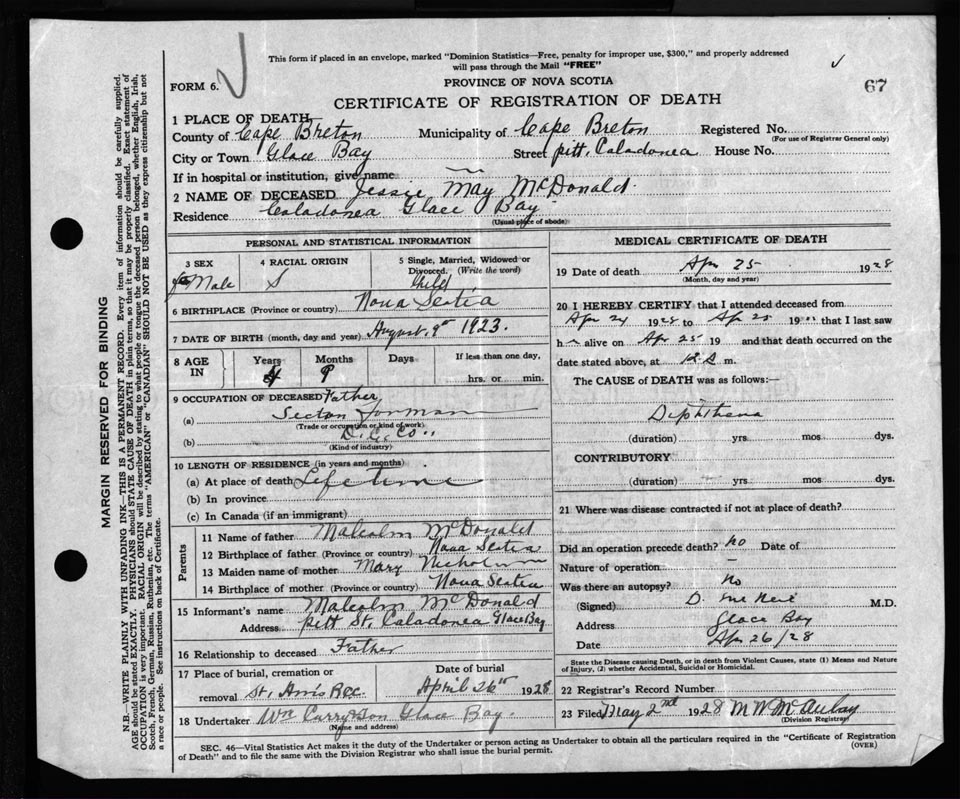 This form if placed in an envelope, marked "Dominion Statistics—Free, penalty for improper use, $300," and properly addressed
will pass through the Mail "FREE"
FORM 6.
PROVINCE OF NOVA SCOTIA
67
CERTIFICATE OF REGISTRATION OF DEATH
1 PLACE OF DEATH
County of Cape Breton Municipality of Cape Breton Registered No.
(For use of Registrar General only)
City or Town Glace Bay Street Pitt, Caladonea House No.
If in hospital or institution, give name
2 NAME OF DECEASED Jessie May McDonald
Residence Caladonea Glace Bay
(Usual place of abode)
PERSONAL AND STATISTICAL INFORMATION
3 SEX 4 RACIAL ORIGIN 5 Single, Married, Widowed or
Divorced. (Write the word)
fe Male S Child
6 BIRTHPLACE (Province or country) Nova Scotia
7 DATE OF BIRTH (month, day and year) August 9th 1923.
8 AGE IN Years Months Days If less than one day,
4 9 hrs. or min.
9 OCCUPATION OF DECEASED Father
(a) Secton Forman
(Trade or occupation or kind of work)
(b) D. C. Co.
(Kind of industry)
10 LENGTH OF RESIDENCE (in years and months)
(a) At place of death Lifetime
(b) In province
(c) In Canada (if an immigrant)
Parents
11 Name of father Malcolm McDonald
12 Birthplace of father (Province or country) Nova Scotia
13 Maiden name of mother Mary
14 Birthplace of mother (Province or country) Nova Scotia
15 Informant's name Malcolm McDonald
Address Pitt St. Caladonea Glace Bay
16 Relationship to deceased Father
17 Place of burial, cremation or Date of burial
removal St. Anns April 26th 1928
18 Undertaker Wm Curry & Son Glace Bay.
(Name and address)
MEDICAL CERTIFICATE OF DEATH
19 Date of death Apr 25 1928
(Month, day and year)
20 I HEREBY CERTIFY that I attended deceased from
Apr 24 1928 to Apr 25 19 that I last saw
h alive on Apr 25 19 and that death occurred on the
date stated above, at 12 m.
The CAUSE of DEATH was as follows:—
Diphtheria
(duration) yrs. mos. dys.
CONTRIBUTORY
(duration) yrs. mos. dys.
21 Where was disease contracted if not at place of death?
Did an operation precede death? No Date of
Nature of operation —
Was there an autopsy? No
(Signed) D. M.D.
Address Glace Bay
Date Apr 26/28
State the Disease causing Death, or in death from Violent Causes, state (1) Means and Nature
of Injury, (2) whether Accidental, Suicidal or Homicidal.
22 Registrar's Record Number
23 Filed May 2nd 1928 M W McAulay
(Division Registrar)
SEC. 46—Vital Statistics Act makes it the duty of the Undertaker or person acting as Undertaker to obtain all the particulars required in the "Certificate of Registration
of Death" and to file the same with the Division Registrar who shall issue the burial permit.
(OVER)
MARGIN RESERVED FOR BINDING
N.B.—WRITE PLAINLY WITH UNFADING INK—THIS IS A PERMANENT RECORD. Every item of information should be carefully supplied.
AGE should be stated EXACTLY. PHYSICIANS should STATE CAUSE OF DEATH in plain terms, so that it may be properly classified. Exact statement of
OCCUPATION is very important. RACIAL ORIGIN will be described by stating to what people or tongue the deceased person belonged, whether English, Irish,
Scotch, French, German, Russian, Ruthenian, etc. The terms "AMERICAN" or "CANADIAN" SHOULD NOT BE USED as they express citizenship but not
a race or people. See instructions on back of Certificate.